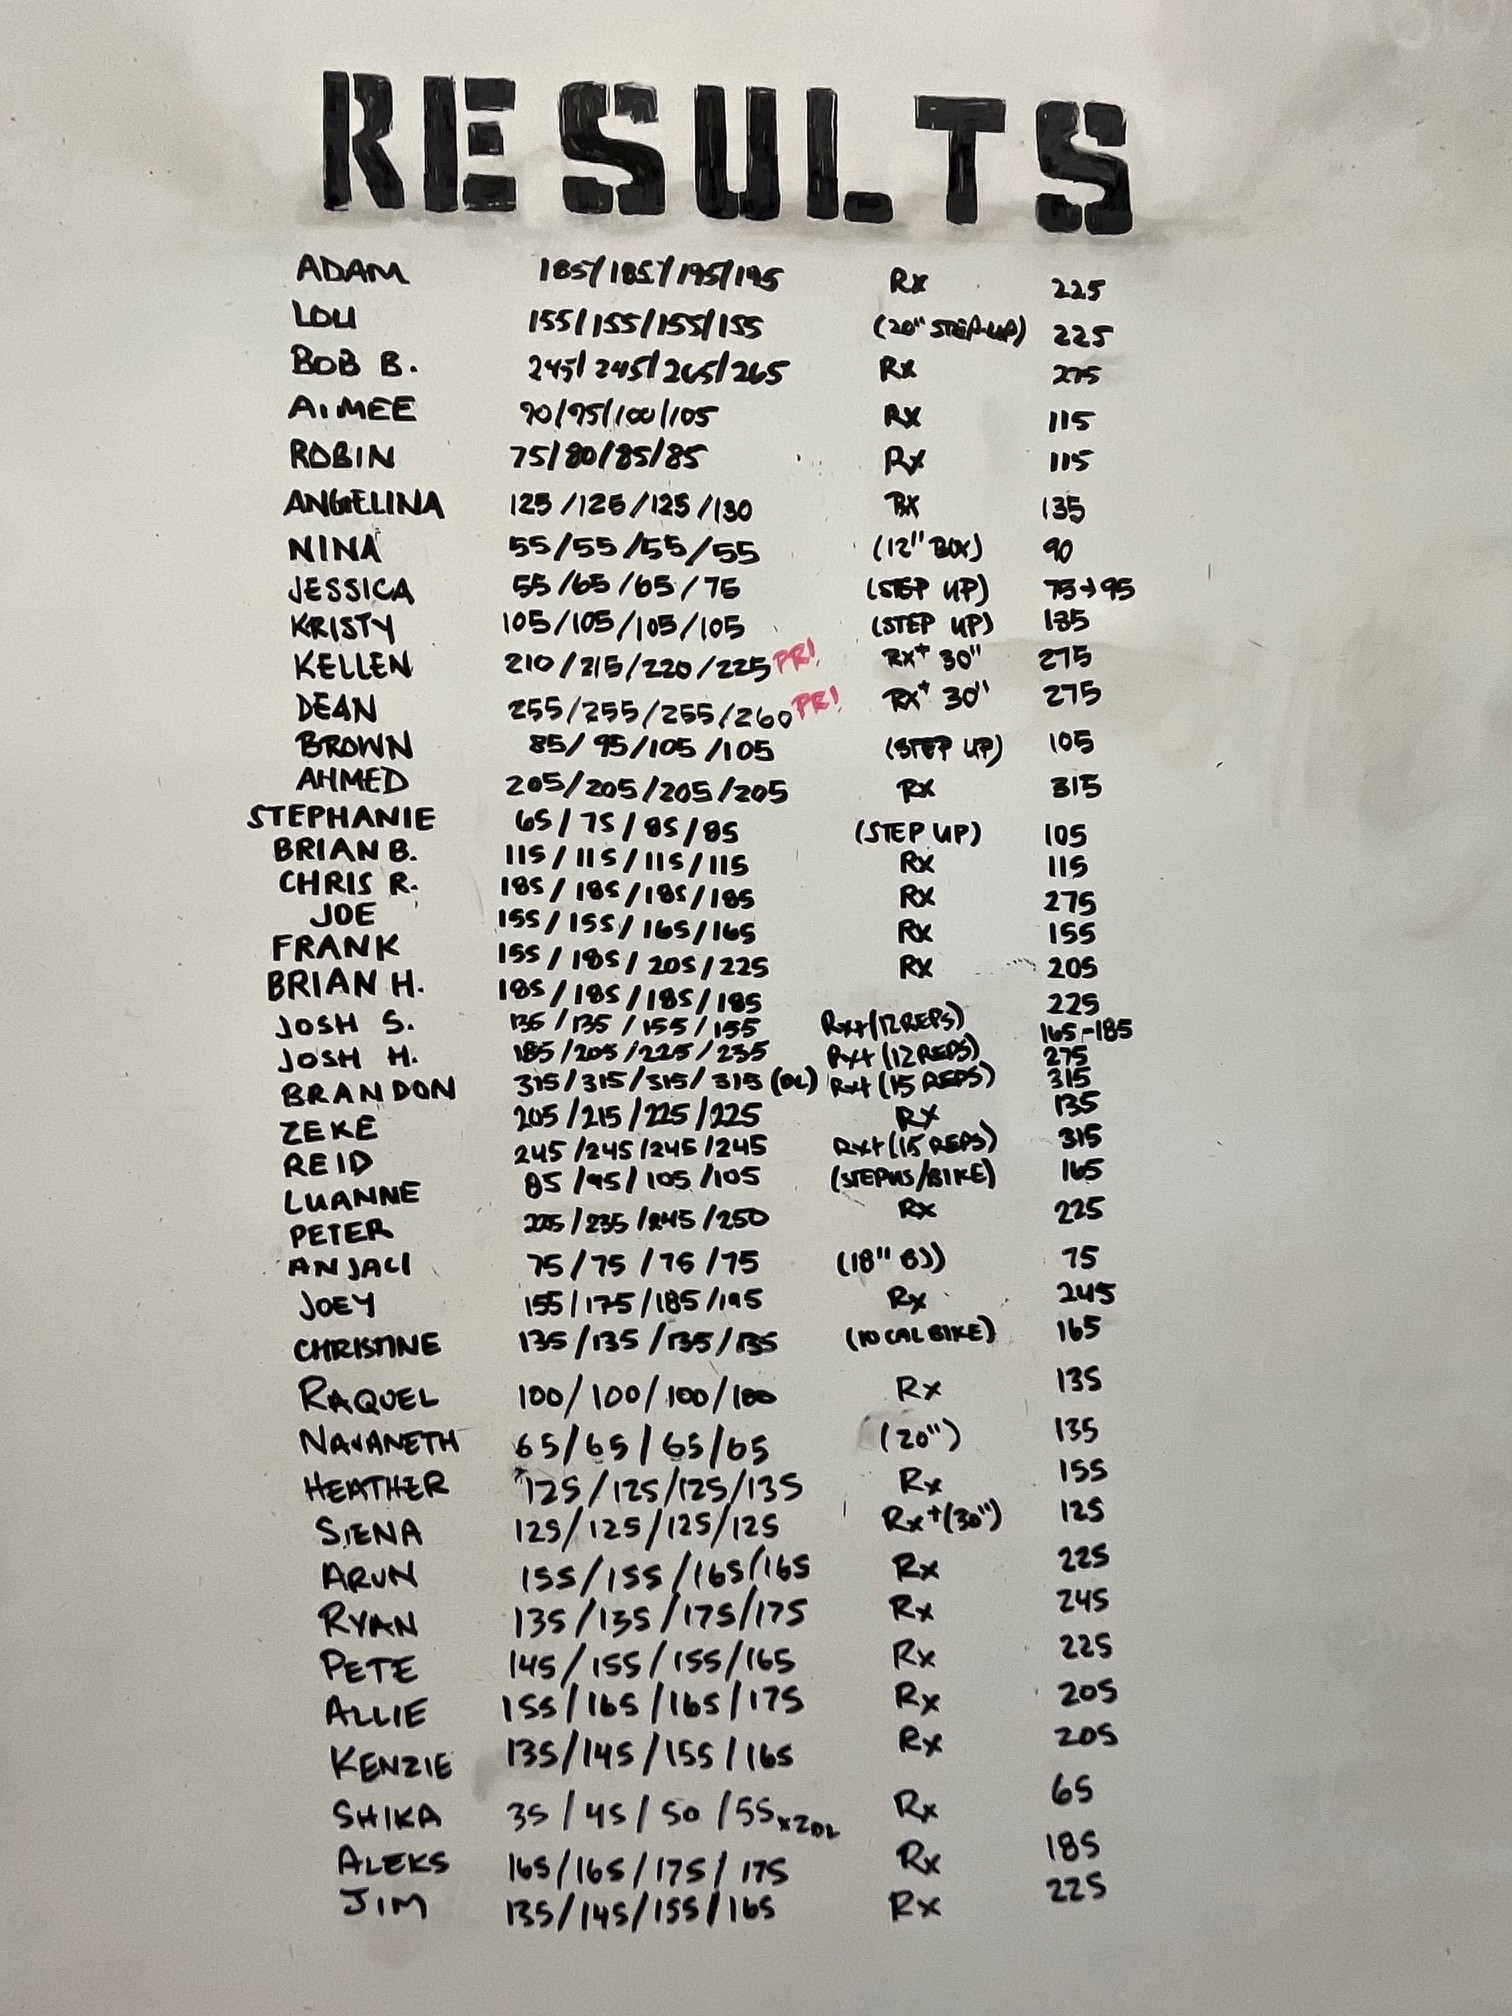 RESULTS
ADAM 185/185/195/195 Rx 225
LOU 155/155/155/155 (20" STEP-UP) 225
BOB B. 245/245/265/265 Rx 275
AIMEE 90/95/100/105 Rx 115
ROBIN 75/80/85/85 Rx 115
ANGELINA 125/125/125/130 Rx 135
NINA 55/55/55/55 (12" BOX) 90
JESSICA 55/65/65/75 (STEP UP) 75→95
KRISTY 105/105/105/105 (STEP UP) 185
KELLEN 210/215/220/225 PR! Rx+ 30" 275
DEAN 255/255/255/260 PR! Rx+ 30" 275
BROWN 85/95/105/105 (STEP UP) 105
AHMED 205/205/205/205 Rx 315
STEPHANIE 65/75/85/85 (STEP UP) 105
BRIAN B. 115/115/115/115 Rx 115
CHRIS R. 185/185/185/185 Rx 275
JOE 155/155/165/165 Rx 155
FRANK 155/185/205/225 Rx 205
BRIAN H. 185/185/185/185 225
JOSH S. 135/135/155/155 Rx+(12 REPS) 165-185
JOSH H. 185/205/225/235 Rx+ (12 REPS) 275
BRANDON 315/315/315/315 (DL) Rx+ (15 REPS) 315
ZEKE 205/215/225/225 Rx 135
REID 245/245/245/245 Rx+(15 REPS) 315
LUANNE 85/95/105/105 (STEPUS/BIKE) 165
PETER 225/235/245/250 Rx 225
ANJALI 75/75/75/75 (18" BJ) 75
JOEY 155/175/185/195 Rx 245
CHRISTINE 135/135/135/135 (10 CAL BIKE) 165
RAQUEL 100/100/100/100 Rx 135
NAVANETH 65/65/65/65 (20") 135
HEATHER 125/125/125/135 Rx 155
SIENA 125/125/125/125 Rx+(30") 125
ARUN 155/155/165/165 Rx 225
RYAN 135/135/175/175 Rx 245
PETE 145/155/155/165 Rx 225
ALLIE 155/165/165/175 Rx 205
KENZIE 135/145/155/165 Rx 205
SHIKA 35/45/50/55 x2DL Rx 65
ALEKS 165/165/175/175 Rx 185
JIM 135/145/155/165 Rx 225